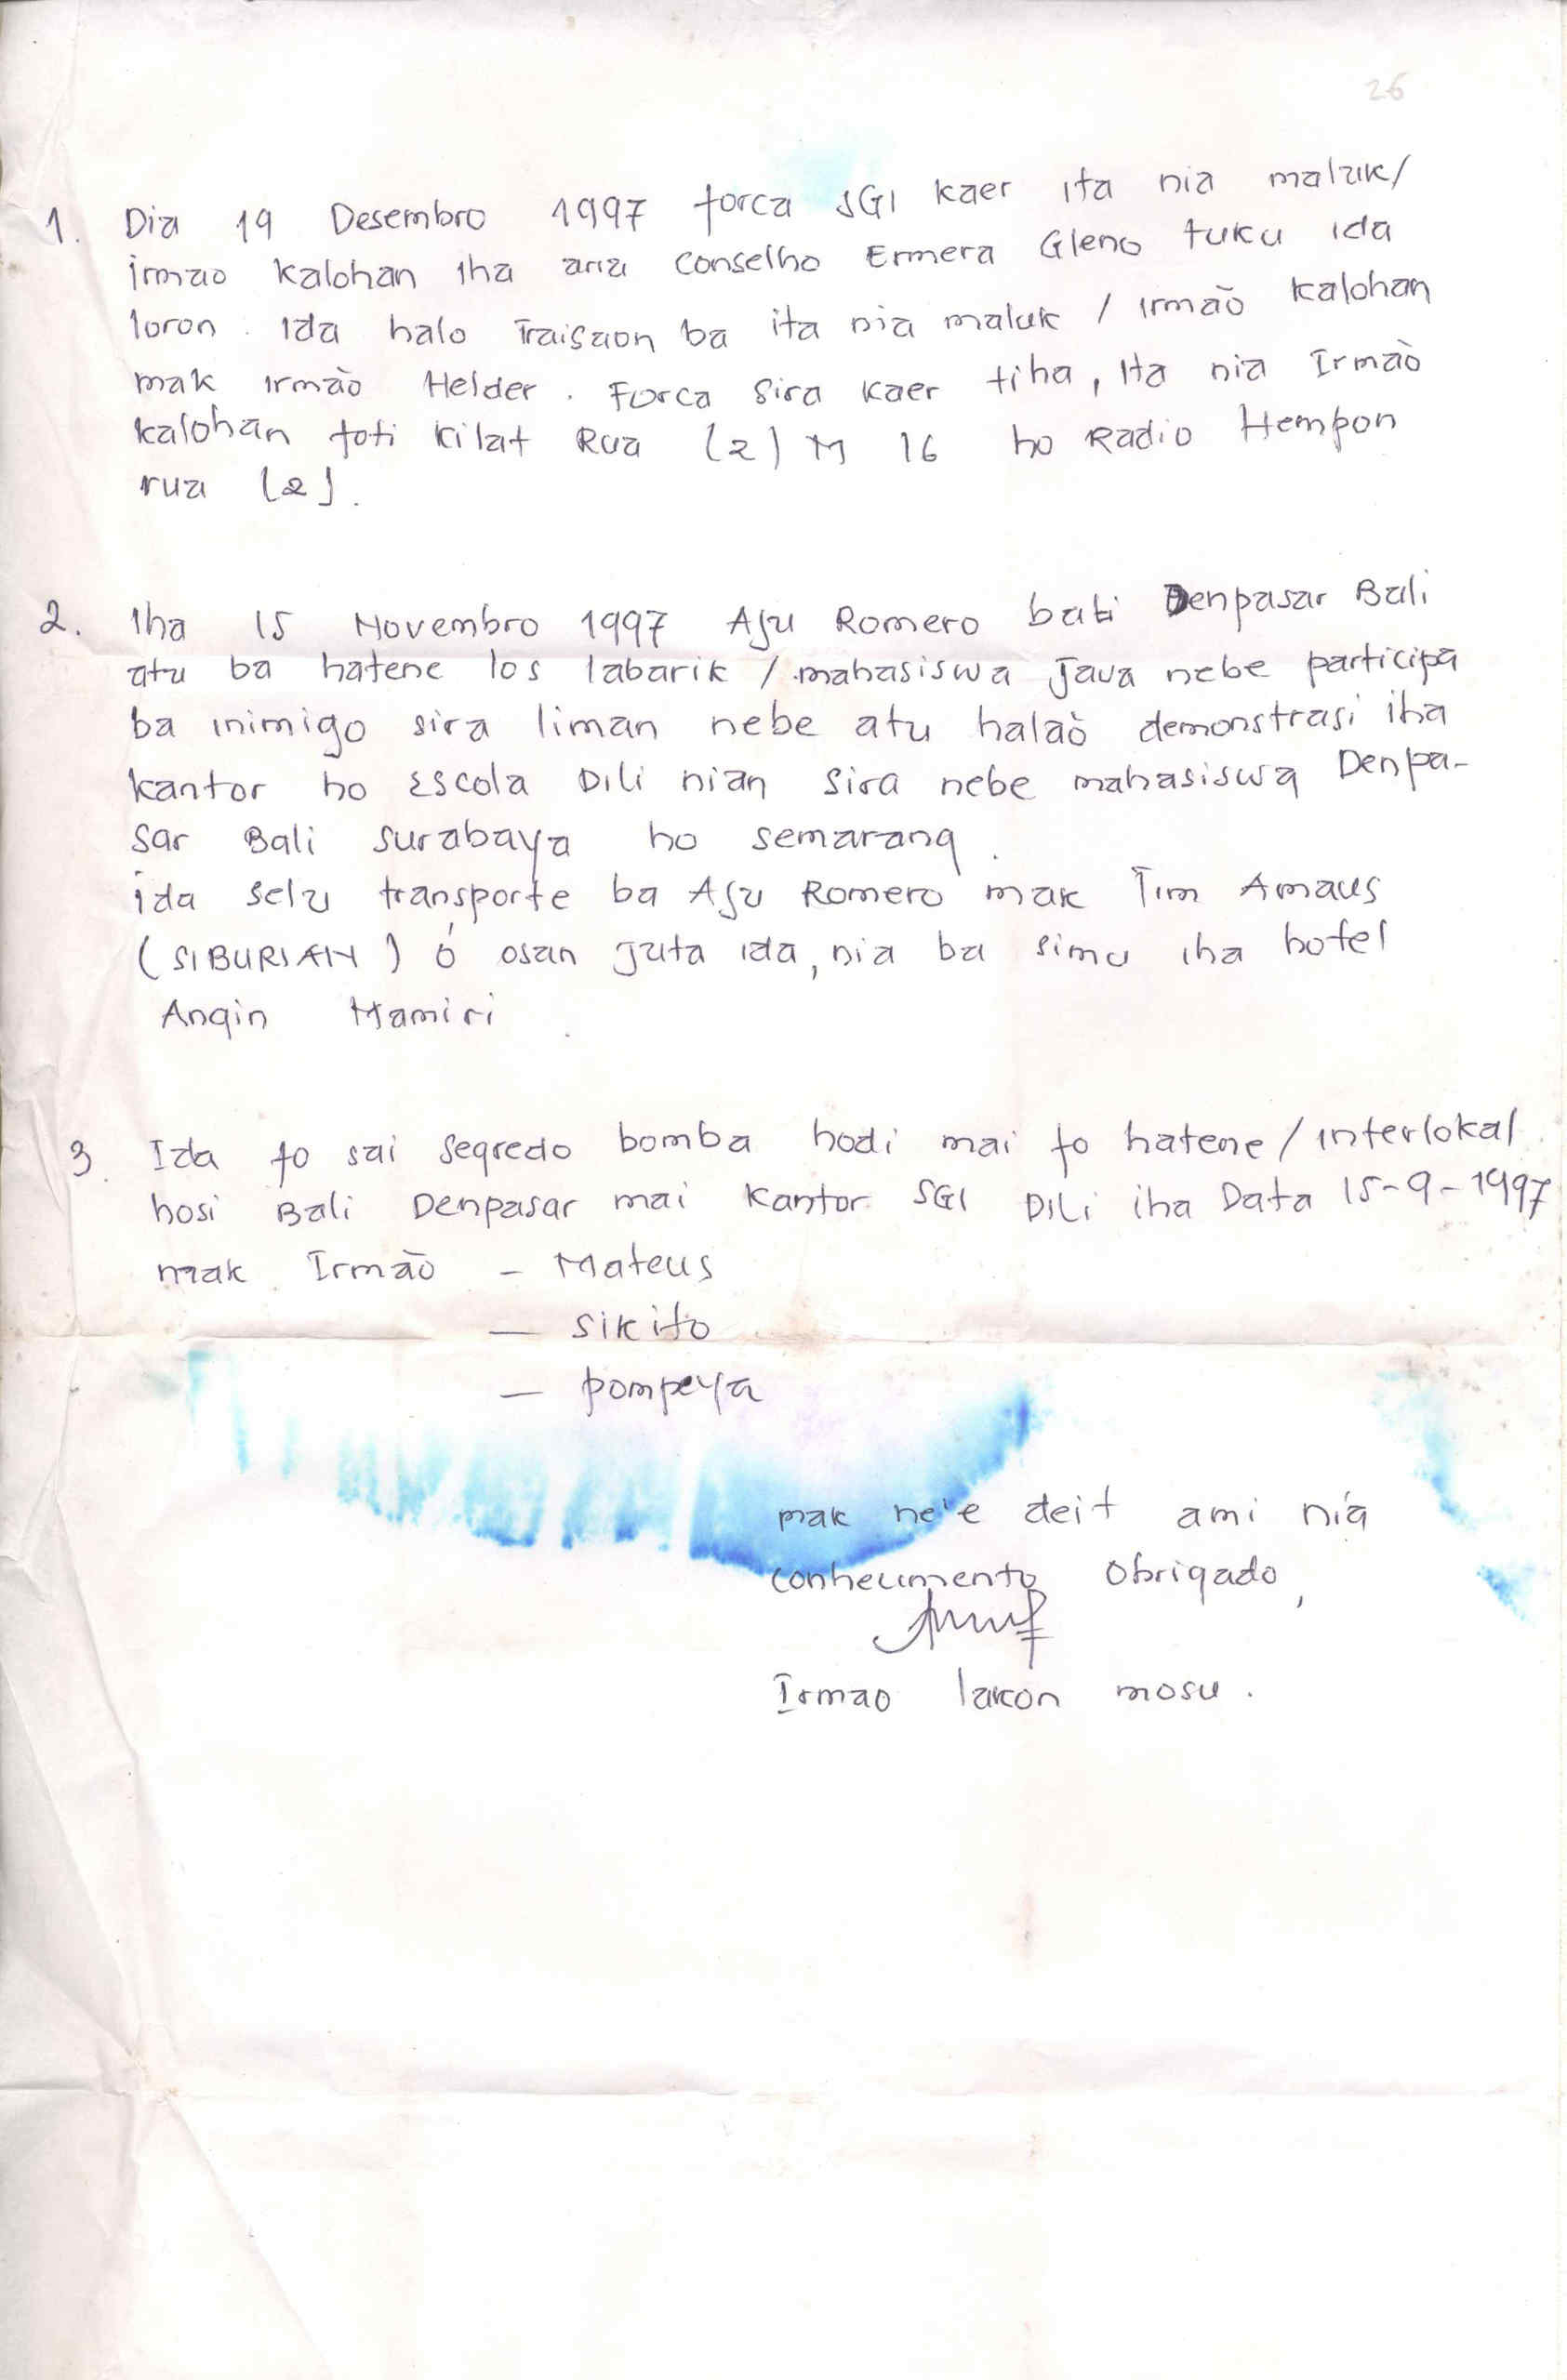 26
1. Dia 19 Desembro 1997 forca SGI kaer ita nia maluk/
irmao kalohan iha aria conselho Ermera Gleno tuku ida
loron. Ida halo Traisaon ba ita nia maluk / irmão kalohan
mak irmão Helder. Forca sira kaer tiha, ita nia Irmão
kalohan foti kilat Rua (2) M 16 ho Radio Hempon
rua (2).
2. Iha 15 Novembro 1997 Romero Denpasar Bali
atu ba hatene los labarik / mahasiswa Java nebe participa
ba inimigo sira liman nebe atu halaò demonstrasi iha
kantor ho Escola Dili nian sira nebe mahasiswa Denpa-
sar Bali Surabaya ho semarang.
ida selu transporte ba Romero mak Tim Amaus
(SIBURIAN) ó osan juta ida, nia ba simu iha hotel
Angin Mamiri
3. Ida fo sai segredo bomba hodi mai fo hatene / interlokal
hosi Bali Denpasar mai kantor SGI Dili iha Data 15-9-1997
mak Irmão - Mateus
- sikito
- pompeya
mak ne'e deit ami nia
conhecimento Obrigado,
Irmao lakon mosu.